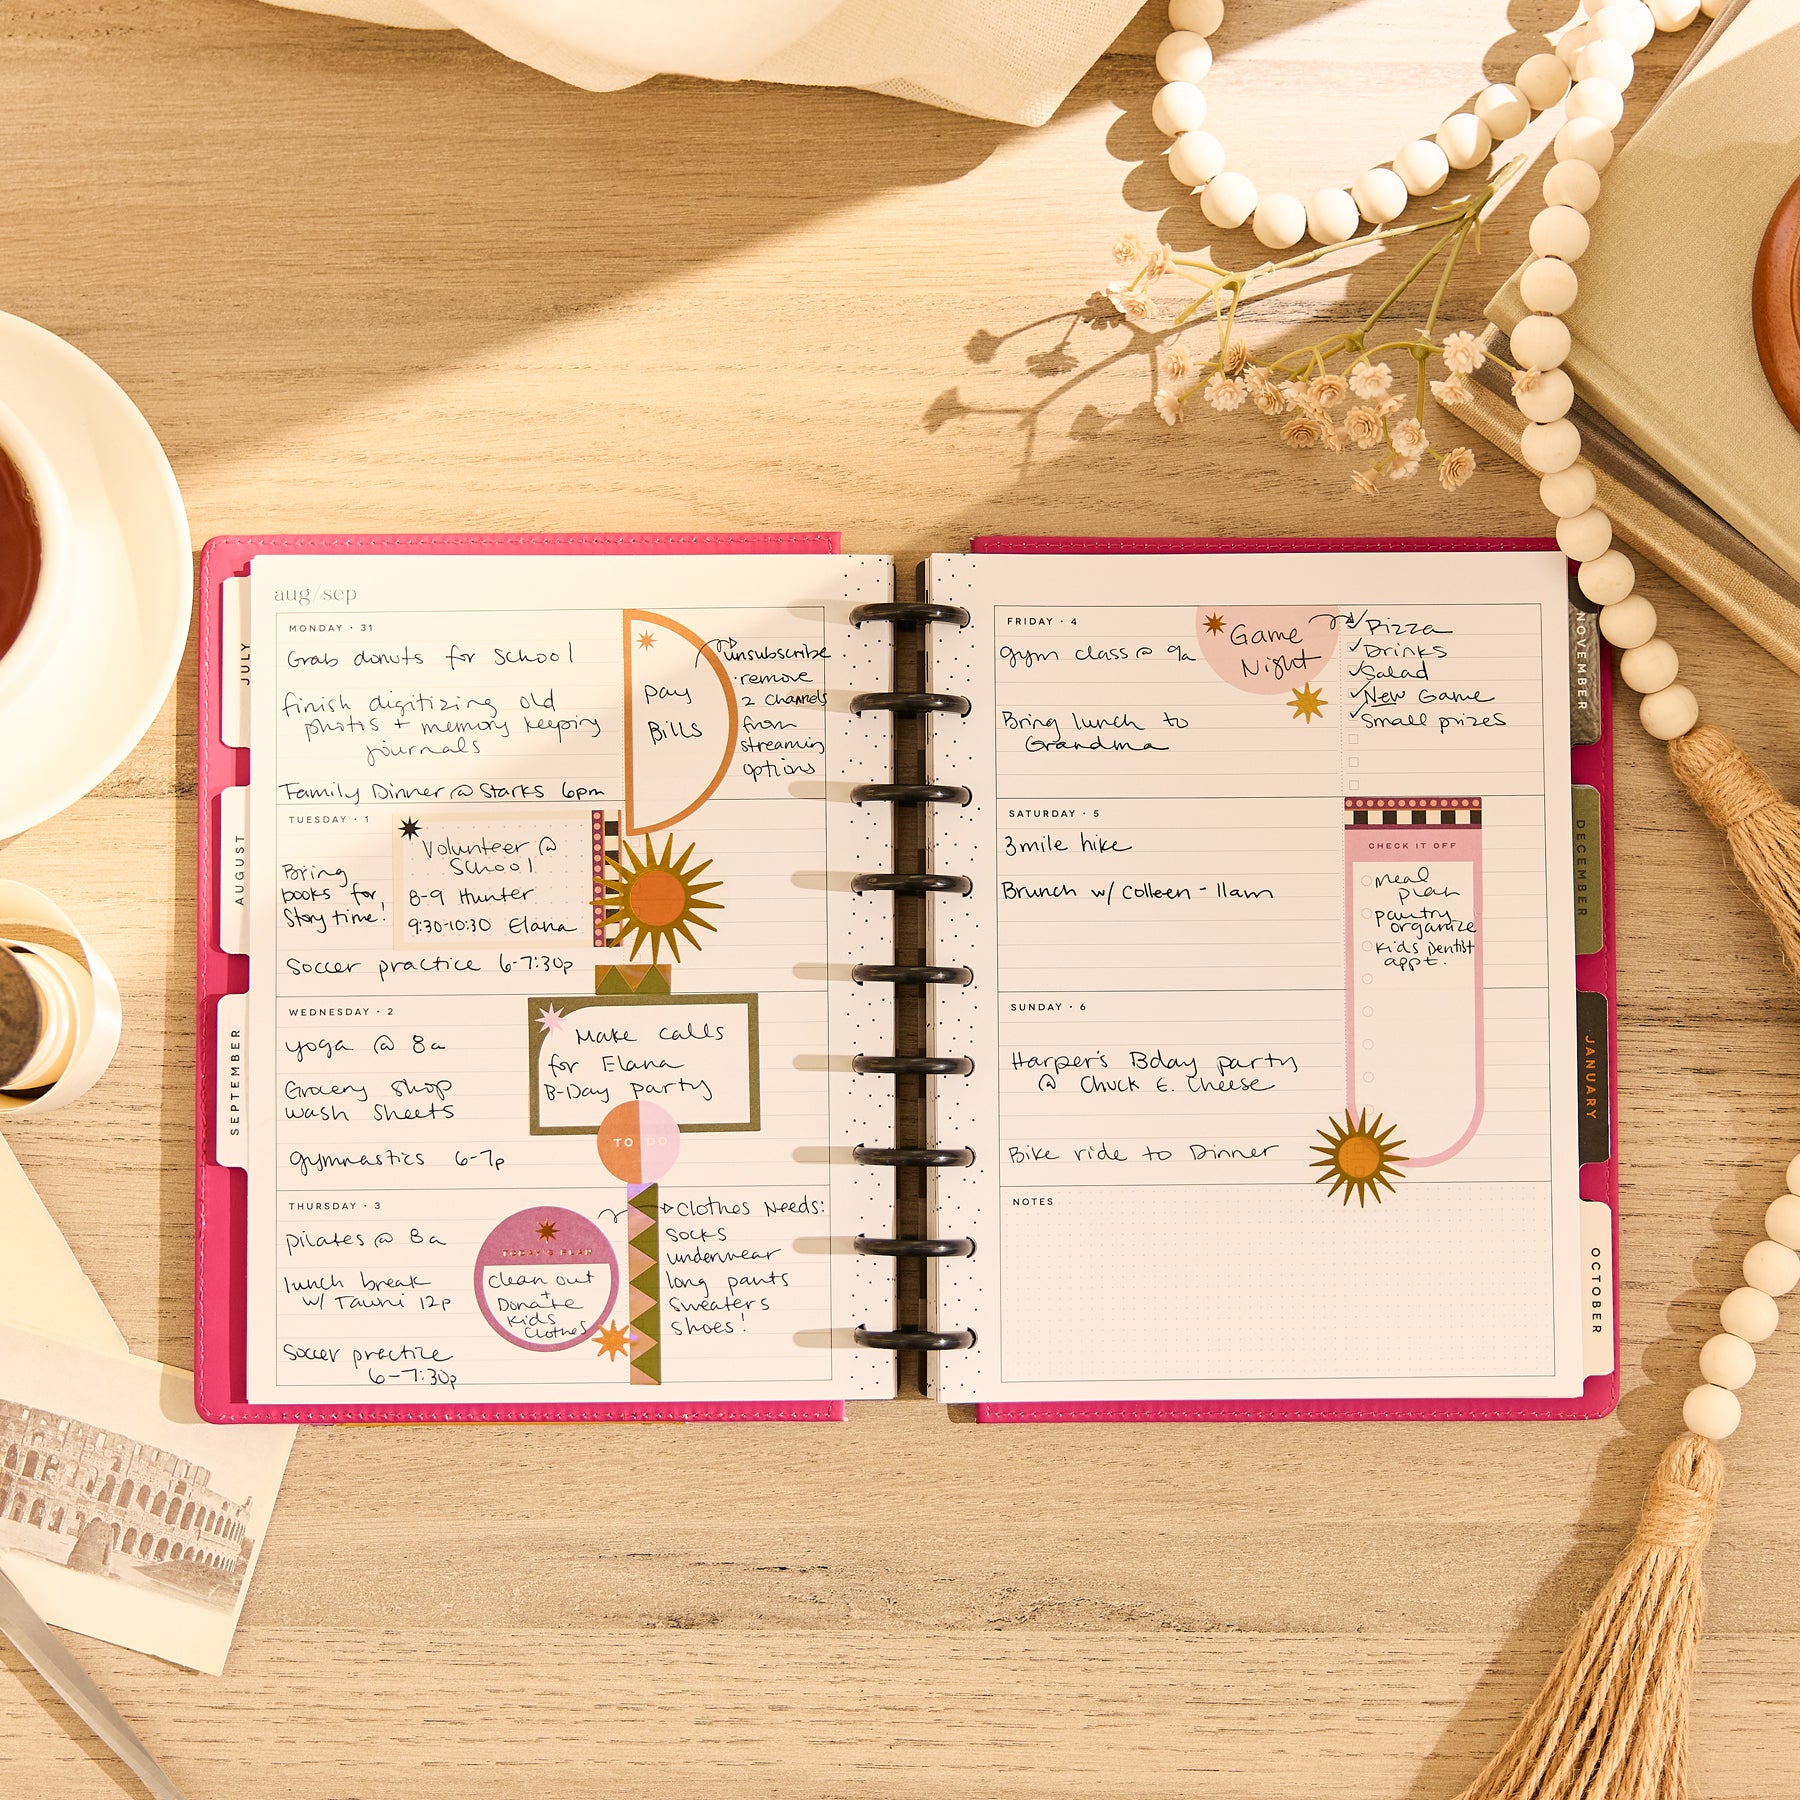 aug/sep
MONDAY · 31
Grab donuts for School
finish digitizing old
photos + memory keeping
journals
Family Dinner @ Starks 6pm
Pay
Bills
unsubscribe
·remove
2 Channels
from
streaming
options
TUESDAY · 1
Bring
books for
Story time!
Volunteer @
School
8-9 Hunter
9:30-10:30 Elana
Soccer practice 6-7:30p
WEDNESDAY · 2
yoga @ 8a
Grocery Shop
wash Sheets
gymnastics 6-7p
Make calls
for Elana
B-Day party
TO DO
THURSDAY · 3
pilates @ 8a
lunch break
w/ Tawni 12p
Soccer practice
6-7:30p
TODAY'S PLAN
Clean out
+
Donate
Kids
Clothes
Clothes Needs:
Socks
underwear
long pants
Sweaters
Shoes!
FRIDAY · 4
gym class @ 9a
Bring lunch to
Grandma
Game
Night
Pizza
Drinks
Salad
New Game
Small prizes
SATURDAY · 5
3mile hike
Brunch w/ Colleen - 11am
CHECK IT OFF
meal
plan
pantry
organize
Kids Dentist
appt.
SUNDAY · 6
Harper's Bday party
@ Chuck E. Cheese
Bike ride to Dinner
NOTES
JULY
AUGUST
SEPTEMBER
NOVEMBER
DECEMBER
JANUARY
OCTOBER